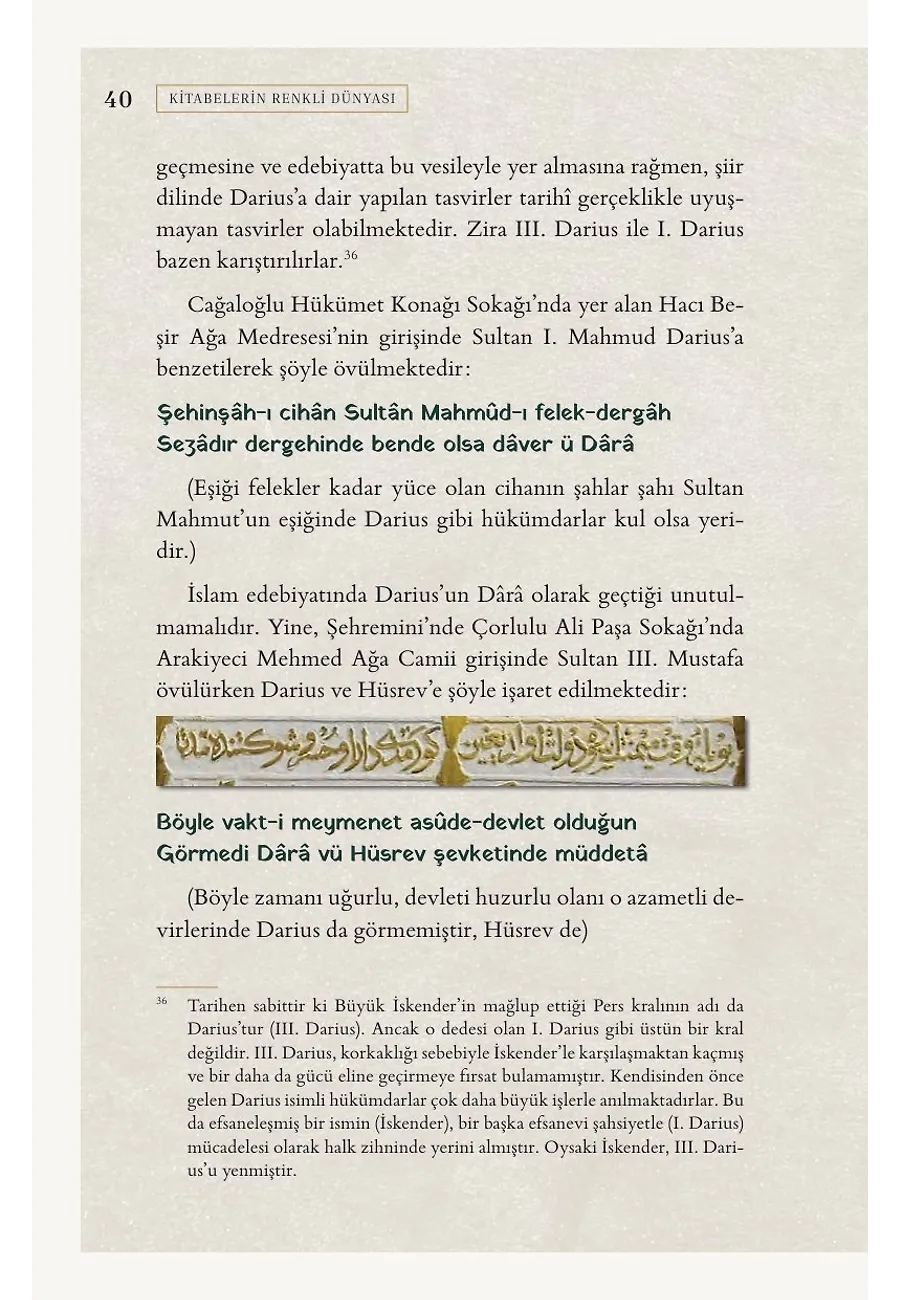 40
KİTABELERİN RENKLİ DÜNYASI
geçmesine ve edebiyatta bu vesileyle yer almasına rağmen, şiir
dilinde Darius’a dair yapılan tasvirler tarihî gerçeklikle uyuş-
mayan tasvirler olabilmektedir. Zira III. Darius ile I. Darius
bazen karıştırılırlar.36
Cağaloğlu Hükümet Konağı Sokağı’nda yer alan Hacı Be-
şir Ağa Medresesi’nin girişinde Sultan I. Mahmud Darius’a
benzetilerek şöyle övülmektedir:
Şehinşâh-ı cihân Sultân Mahmûd-ı felek-dergâh
Sezâdır dergehinde bende olsa dâver ü Dârâ
(Eşiği felekler kadar yüce olan cihanın şahlar şahı Sultan
Mahmut’un eşiğinde Darius gibi hükümdarlar kul olsa yeri-
dir.)
İslam edebiyatında Darius’un Dârâ olarak geçtiği unutul-
mamalıdır. Yine, Şehremini’nde Çorlulu Ali Paşa Sokağı’nda
Arakiyeci Mehmed Ağa Camii girişinde Sultan III. Mustafa
övülürken Darius ve Hüsrev’e şöyle işaret edilmektedir:
Böyle vakt-i meymenet asûde-devlet olduğun
Görmedi Dârâ vü Hüsrev şevketinde müddetâ
(Böyle zamanı uğurlu, devleti huzurlu olanı o azametli de-
virlerinde Darius da görmemiştir, Hüsrev de)
36 Tarihen sabittir ki Büyük İskender’in mağlup ettiği Pers kralının adı da
Darius’tur (III. Darius). Ancak o dedesi olan I. Darius gibi üstün bir kral
değildir. III. Darius, korkaklığı sebebiyle İskender’le karşılaşmaktan kaçmış
ve bir daha da gücü eline geçirmeye fırsat bulamamıştır. Kendisinden önce
gelen Darius isimli hükümdarlar çok daha büyük işlerle anılmaktadırlar. Bu
da efsaneleşmiş bir ismin (İskender), bir başka efsanevi şahsiyetle (I. Darius)
mücadelesi olarak halk zihninde yerini almıştır. Oysaki İskender, III. Dari-
us’u yenmiştir.